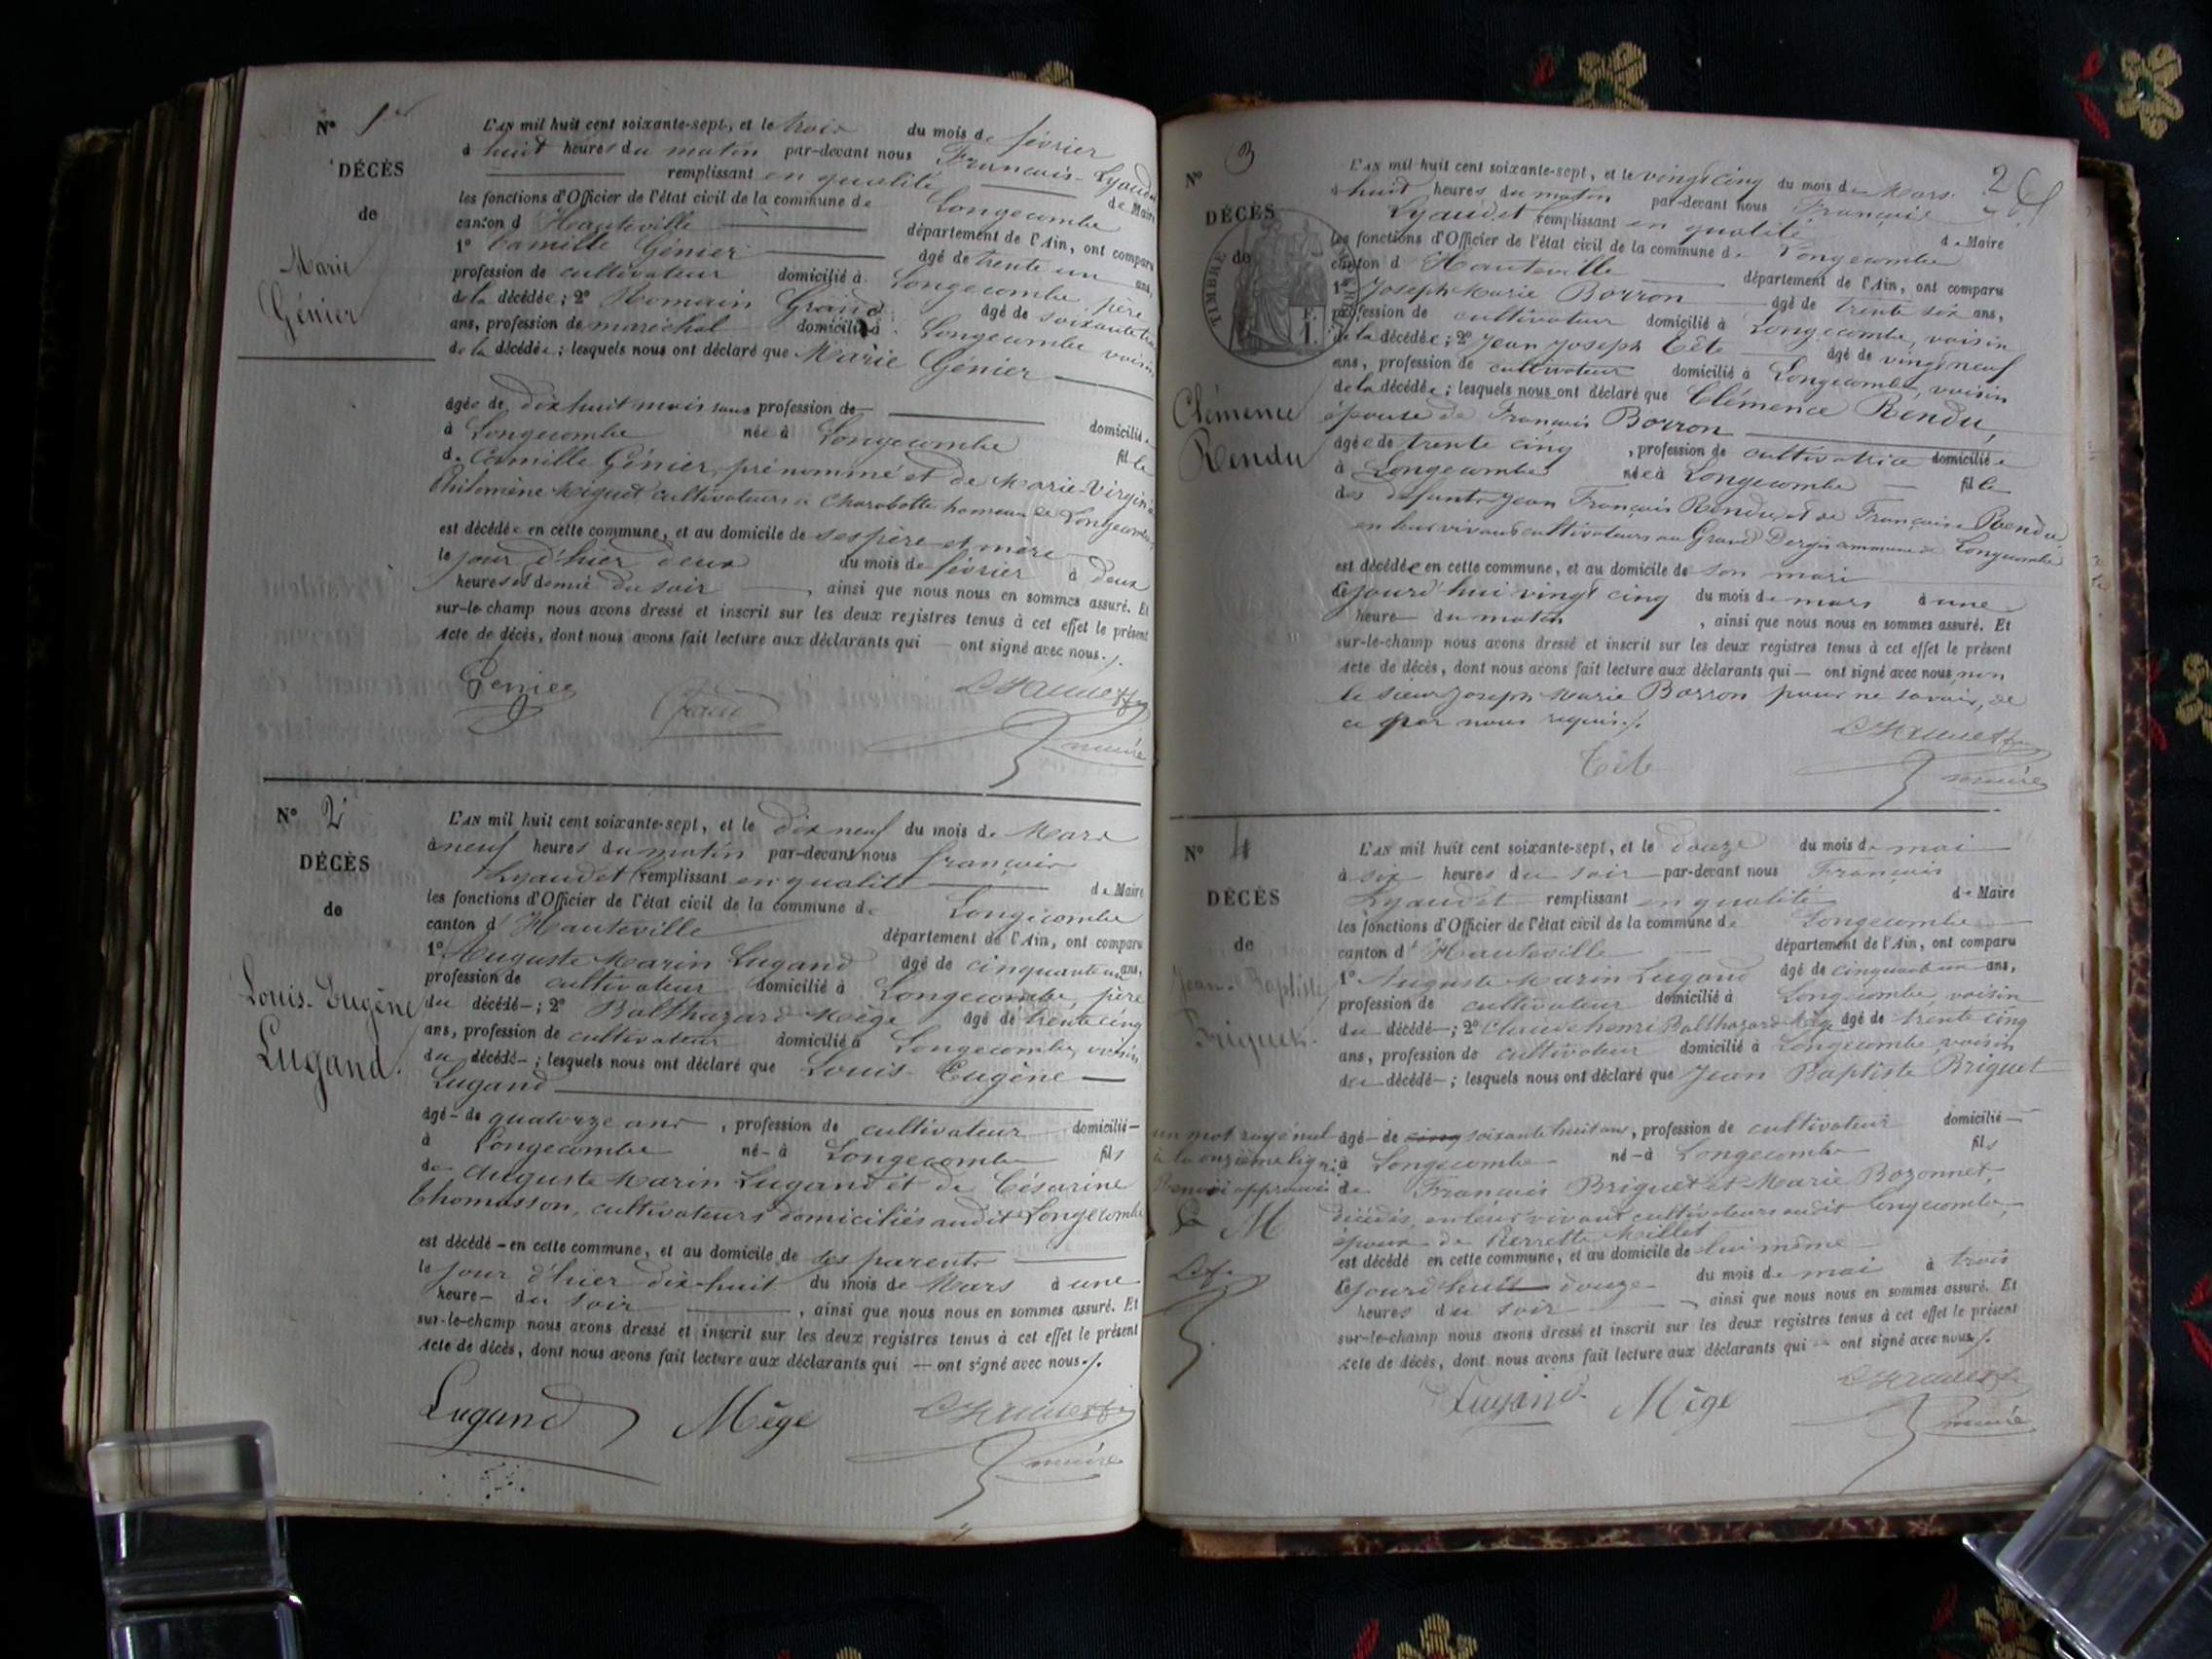 N° 1er
DÉCÈS
de
Marie
Génier
L'AN mil huit cent soixante-sept, et le trois du mois de février
à huit heures du matin par-devant nous François Lyaudet
remplissant en qualité de Maire
les fonctions d'Officier de l'état civil de la commune de Longecombe
canton d'Hauteville département de l'Ain, ont comparu
1° Camille Génier âgé de trente un ans,
profession de cultivateur domicilié à Longecombe père
de la décédée; 2° Romain Grand âgé de soixante
ans, profession de maréchal domicilié à Longecombe voisin
de la décédée; lesquels nous ont déclaré que Marie Génier
âgée de dix huit mois sans profession de domiciliée
à Longecombe née à Longecombe fille
de Camille Génier, prénommé et de Marie-Virginie
Philomène Miguet cultivateurs à Charabotte hameau de Longecombe
est décédée en cette commune, et au domicile de ses père et mère
le jour d'hier deux du mois de février à deux
heures et demie du soir, ainsi que nous nous en sommes assuré. Et
sur-le-champ nous avons dressé et inscrit sur les deux registres tenus à cet effet le présent
acte de décès, dont nous avons fait lecture aux déclarants qui — ont signé avec nous ./.
Genier Grand maire
N° 2
DÉCÈS
de
Louis-Eugène
Lugand.
L'AN mil huit cent soixante-sept, et le dix neuf du mois de Mars
à neuf heures du matin par-devant nous françois
Lyaudet remplissant en qualité de Maire
les fonctions d'Officier de l'état civil de la commune de Longecombe
canton d'Hauteville département de l'Ain, ont comparu
1° Auguste Marin Lugand âgé de cinquante un ans,
profession de cultivateur domicilié à Longecombe, père
du décédé—; 2° Balthazard Mège âgé de trente cinq
ans, profession de cultivateur domicilié à Longecombe, voisin
du décédé—; lesquels nous ont déclaré que Louis-Eugène
Lugand
âgé— de quatorze ans, profession de cultivateur domicilié—
à Longecombe né—à Longecombe fils
de Auguste Marin Lugand et de Césarine
Thomasson, cultivateurs domiciliés audit Longecombe
est décédé—en cette commune, et au domicile de ses parents
le jour d'hier dix-huit du mois de Mars à une
heure— du soir, ainsi que nous nous en sommes assuré. Et
sur-le-champ nous avons dressé et inscrit sur les deux registres tenus à cet effet le présent
acte de décès, dont nous avons fait lecture aux déclarants qui — ont signé avec nous ./.
Lugand Mège maire
26
N° 3
DÉCÈS
de
TIMBRE
F.
1.
Clémence
Rendu
L'AN mil huit cent soixante-sept, et le vingt cinq du mois de Mars
à huit heures du matin par-devant nous François
Lyaudet remplissant en qualité de Maire
les fonctions d'Officier de l'état civil de la commune de Longecombe
canton d'Hauteville département de l'Ain, ont comparu
1° Joseph Marie Borron âgé de trente six ans,
profession de cultivateur domicilié à Longecombe, voisin
de la décédée; 2° Jean Joseph Tête âgé de vingt neuf
ans, profession de cultivateur domicilié à Longecombe, voisin
de la décédée; lesquels nous ont déclaré que Clémence Rendu,
épouse de François Borron
âgée de trente cinq, profession de cultivatrice domiciliée
à Longecombe née à Longecombe — fille
des défunts Jean François Rendu, et de Françoise Rendu
en leur vivant cultivateurs au Grand Dergis commune de Longecombe
est décédée en cette commune, et au domicile de son mari
ce jourd'hui vingt cinq du mois de mars à une
heure— du matin, ainsi que nous nous en sommes assuré. Et
sur-le-champ nous avons dressé et inscrit sur les deux registres tenus à cet effet le présent
acte de décès, dont nous avons fait lecture aux déclarants qui — ont signé avec nous, non
le sieur Joseph Marie Borron pour ne savoir, de
ce par nous requis ./.
Tête maire
N° 4
DÉCÈS
de
Jean-Baptiste
Briguet.
L'AN mil huit cent soixante-sept, et le douze du mois de mai
à six heures du soir par-devant nous François
Lyaudet remplissant en qualité de Maire
les fonctions d'Officier de l'état civil de la commune de Longecombe
canton d'Hauteville département de l'Ain, ont comparu
1° Auguste Marin Lugand âgé de cinquante un ans,
profession de cultivateur domicilié à Longecombe, voisin
du décédé—; 2° Claude henri Balthazard Mège âgé de trente cinq
ans, profession de cultivateur domicilié à Longecombe, voisin
du décédé—; lesquels nous ont déclaré que Jean Baptiste Briguet
un mot rayé nul
à la onzième ligne
Renvoi approuvé
L M
âgé—de cinq soixante huit ans, profession de cultivateur domicilié—
à Longecombe né—à Longecombe fils
de François Briguet et Marie Bozonnet,
décédés, en leur vivant cultivateurs audit Longecombe,
époux de Pierrette Millet
est décédé en cette commune, et au domicile de lui même
ce jourd'hui douze du mois de mai à trois
heures du soir, ainsi que nous nous en sommes assuré. Et
sur-le-champ nous avons dressé et inscrit sur les deux registres tenus à cet effet le présent
acte de décès, dont nous avons fait lecture aux déclarants qui — ont signé avec nous ./.
Lugand Mège maire